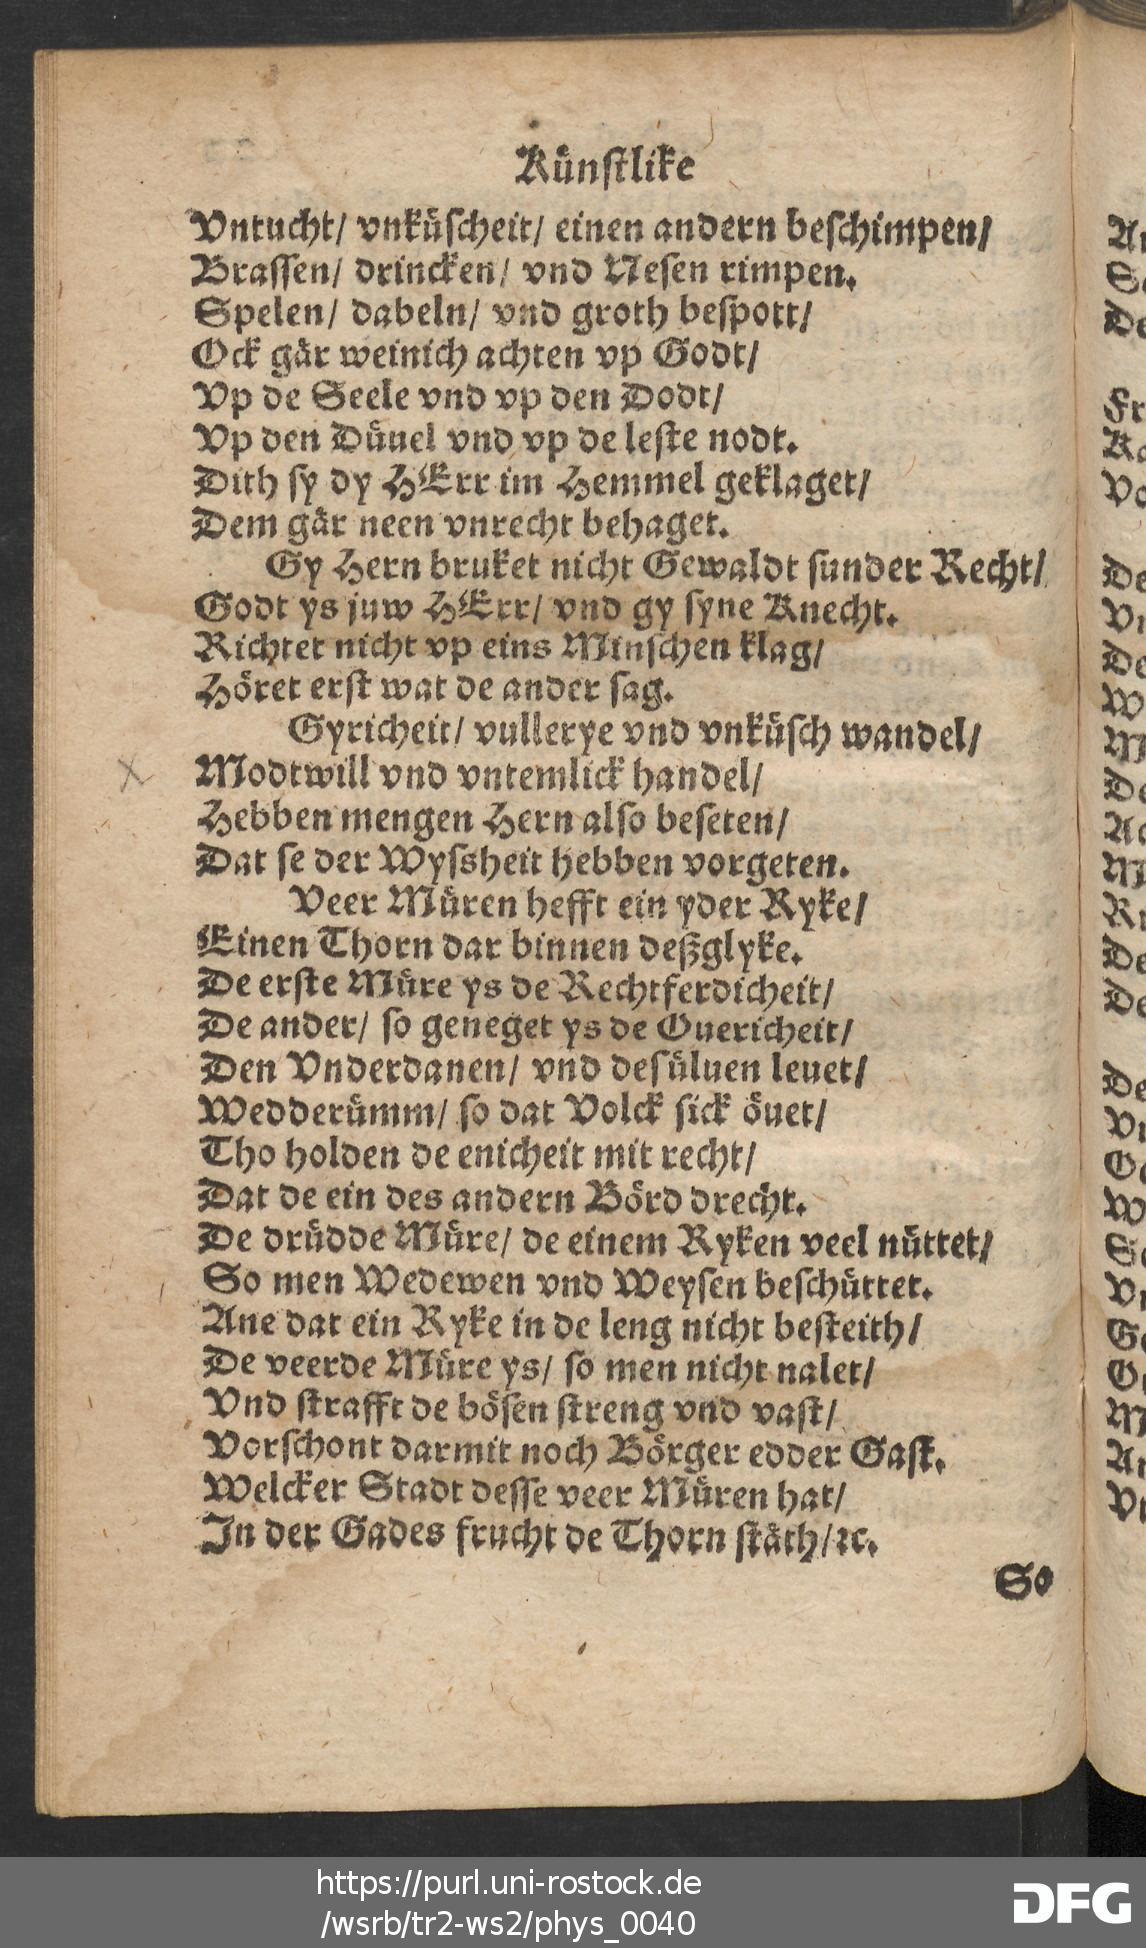 Künstlike
Vntucht/ vnküscheit/ einen andern beschimpen/
Brassen/ drincken/ vnd Nesen rimpen.
Spelen/ dabeln/ vnd groth bespott/
Ock gär weinich achten vp Godt/
Vp de Seele vnd vp den Dodt/
Vp den Düuel vnd vp de leste nodt.
Dith sy dy HErr im Hemmel geklaget/
Dem gär neen vnrecht behaget.
Gy Hern bruket nicht Gewaldt sunder Recht/
Godt ys juw HErr/ vnd gy syne Knecht.
Richtet nicht vp eins Minschen klag/
Höret erst wat de ander sag.
Gyricheit/ vullerye vnd vnküsch wandel/
Modtwill vnd vntemlick handel/
Hebben mengen Hern also beseten/
Dat se der Wyssheit hebben vorgeten.
Veer Müren hefft ein yder Ryke/
Einen Thorn dar binnen deßglyke.
De erste Müre ys de Rechtferdicheit/
De ander/ so geneget ys de Ouericheit/
Den Vnderdanen/ vnd desüluen leuet/
Wedderümm/ so dat Volck sick öuet/
Tho holden de enicheit mit recht/
Dat de ein des andern Börd drecht.
De drüdde Müre/ de einem Ryken veel nüttet/
So men Wedewen vnd Weysen beschüttet.
Ane dat ein Ryke in de leng nicht besteith/
De veerde Müre ys/ so men nicht nalet/
Vnd strafft de bösen streng vnd vast/
Vorschont darmit noch Börger edder Gast.
Welcker Stadt desse veer Müren hat/
In der Gades frucht de Thorn stäth/ꝛc.
So
https://purl.uni-rostock.de
/wsrb/tr2-ws2/phys_0040
DFG